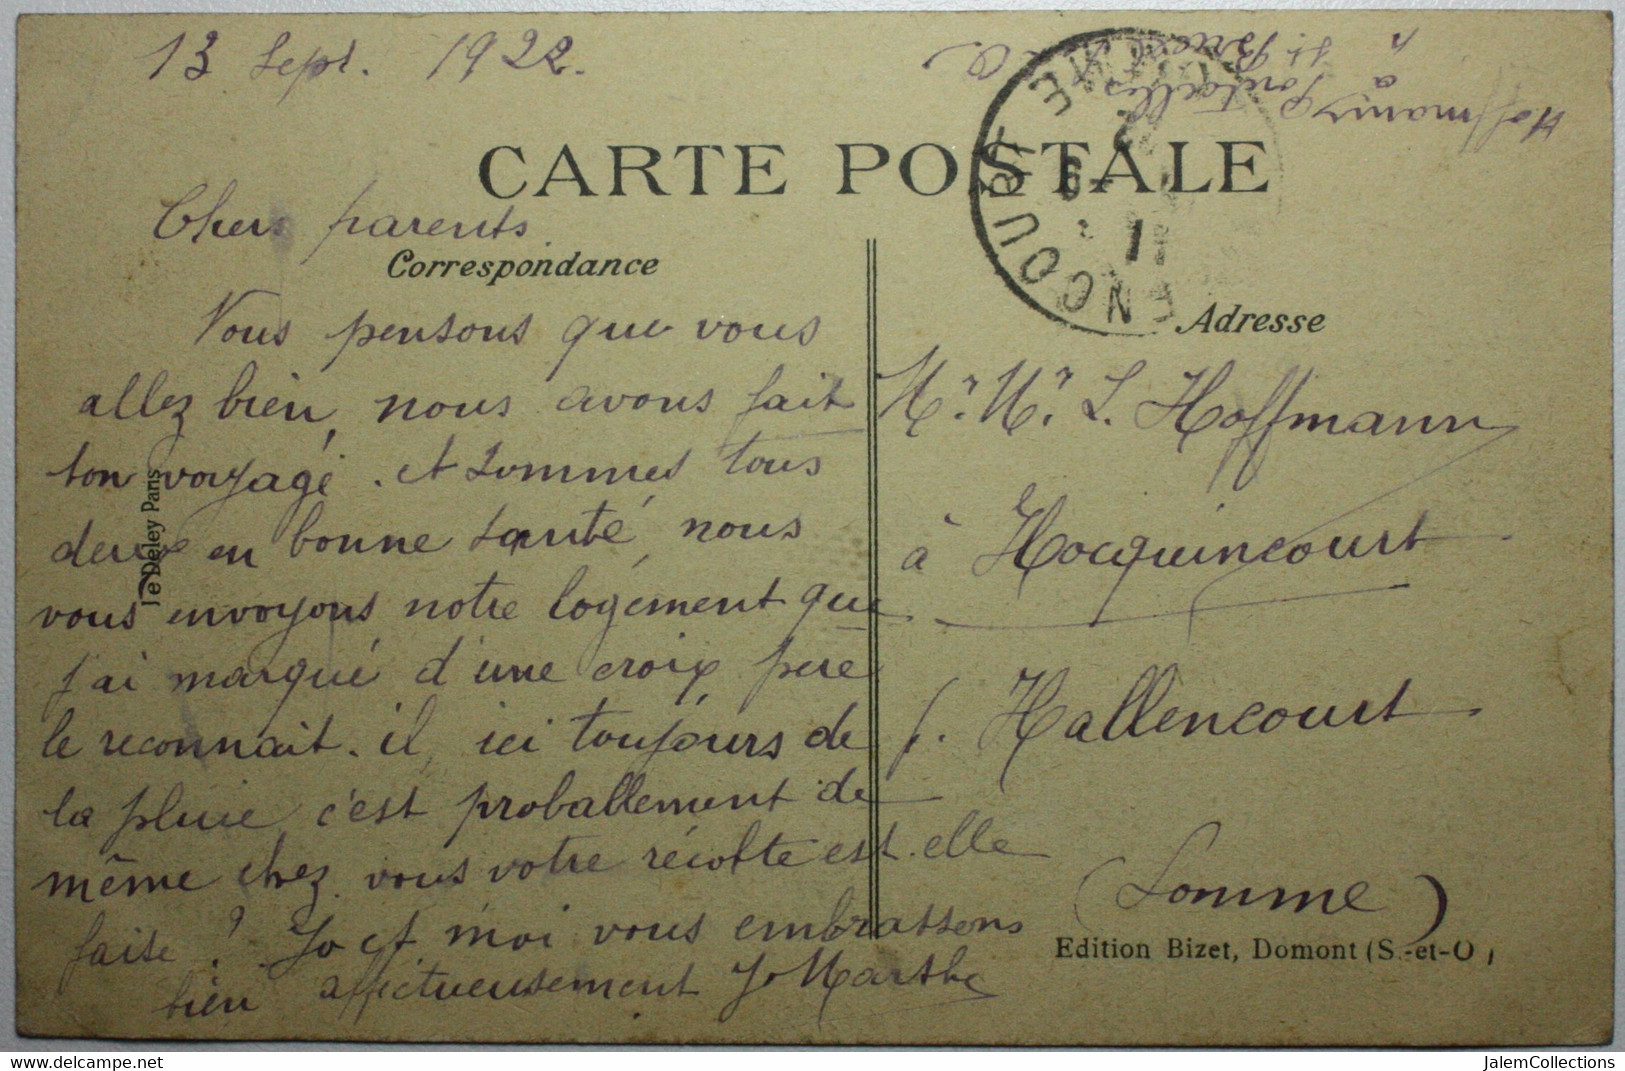 13 Sept. 1922.
Hoffmann
à
CARTE POSTALE
Chers parents
Correspondance
Nous pensons que vous
allez bien, nous avons fait
bon voyage. et sommes tous
deux en bonne santé, nous
vous envoyons notre logement que
j'ai marqué d'une croix pere
le reconnait. il, ici toujours de
la pluie, c'est proballement de
même chez vous votre récolte est-elle
faite ? Jo et moi vous embrassons
bien affectueusement Jo Marthe
Je Deley Paris
Adresse
Mr. Mr L. Hoffmann
à Hocquincourt
p. Hallencourt
(Somme)
Edition Bizet, Domont (S.-et-O)
ENCOURT
SOMME
www.delcampe.net
JalemCollections